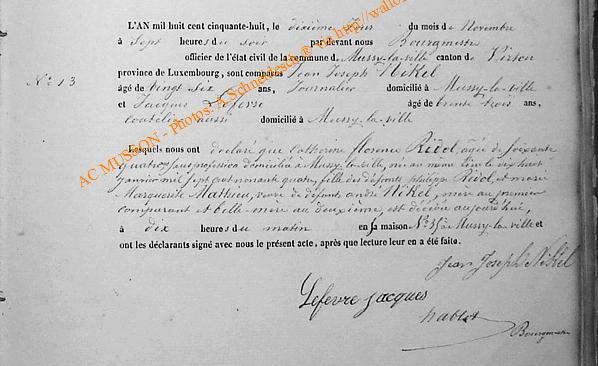 L'AN mil huit cent cinquante-huit, le dixième jour du mois de Novembre
à Sept heures du soir par devant nous Bourgmestre
officier de l'état civil de la commune de Mussy-la-ville canton de Virton
N° 13
province de Luxembourg, sont comparus Jean Joseph Nikel
âgé de Vingt Six ans, Journalier domicilié à Mussy-la-ville
et Jacques Lefevre âgé de trente trois ans,
aussi domicilié à Mussy-la-ville
Lesquels nous ont déclaré que Catherine Florence Ridol, agée de Soixante
quatre, sans profession domiciliée à Mussy-la-ville, née au même lieu le dix huit
janvier mil Sept cent nonante quatre, fille des défunts philippe Ridol, et
Marguerite Mathieu, veuve de défunt andré Nikel, mère au premier
comparant et belle-mère au deuxième, est décédée aujourd'hui,
à dix heures du matin en sa maison N° de Mussy-la-ville et
ont les déclarants signé avec nous le présent acte, après que lecture leur en a été faite.
Jean Joseph Nikel
Lefevre jacques
hablot
Bourgmestre
AC MUSSON - Photos: A.Schneidesch @ via http://wallo